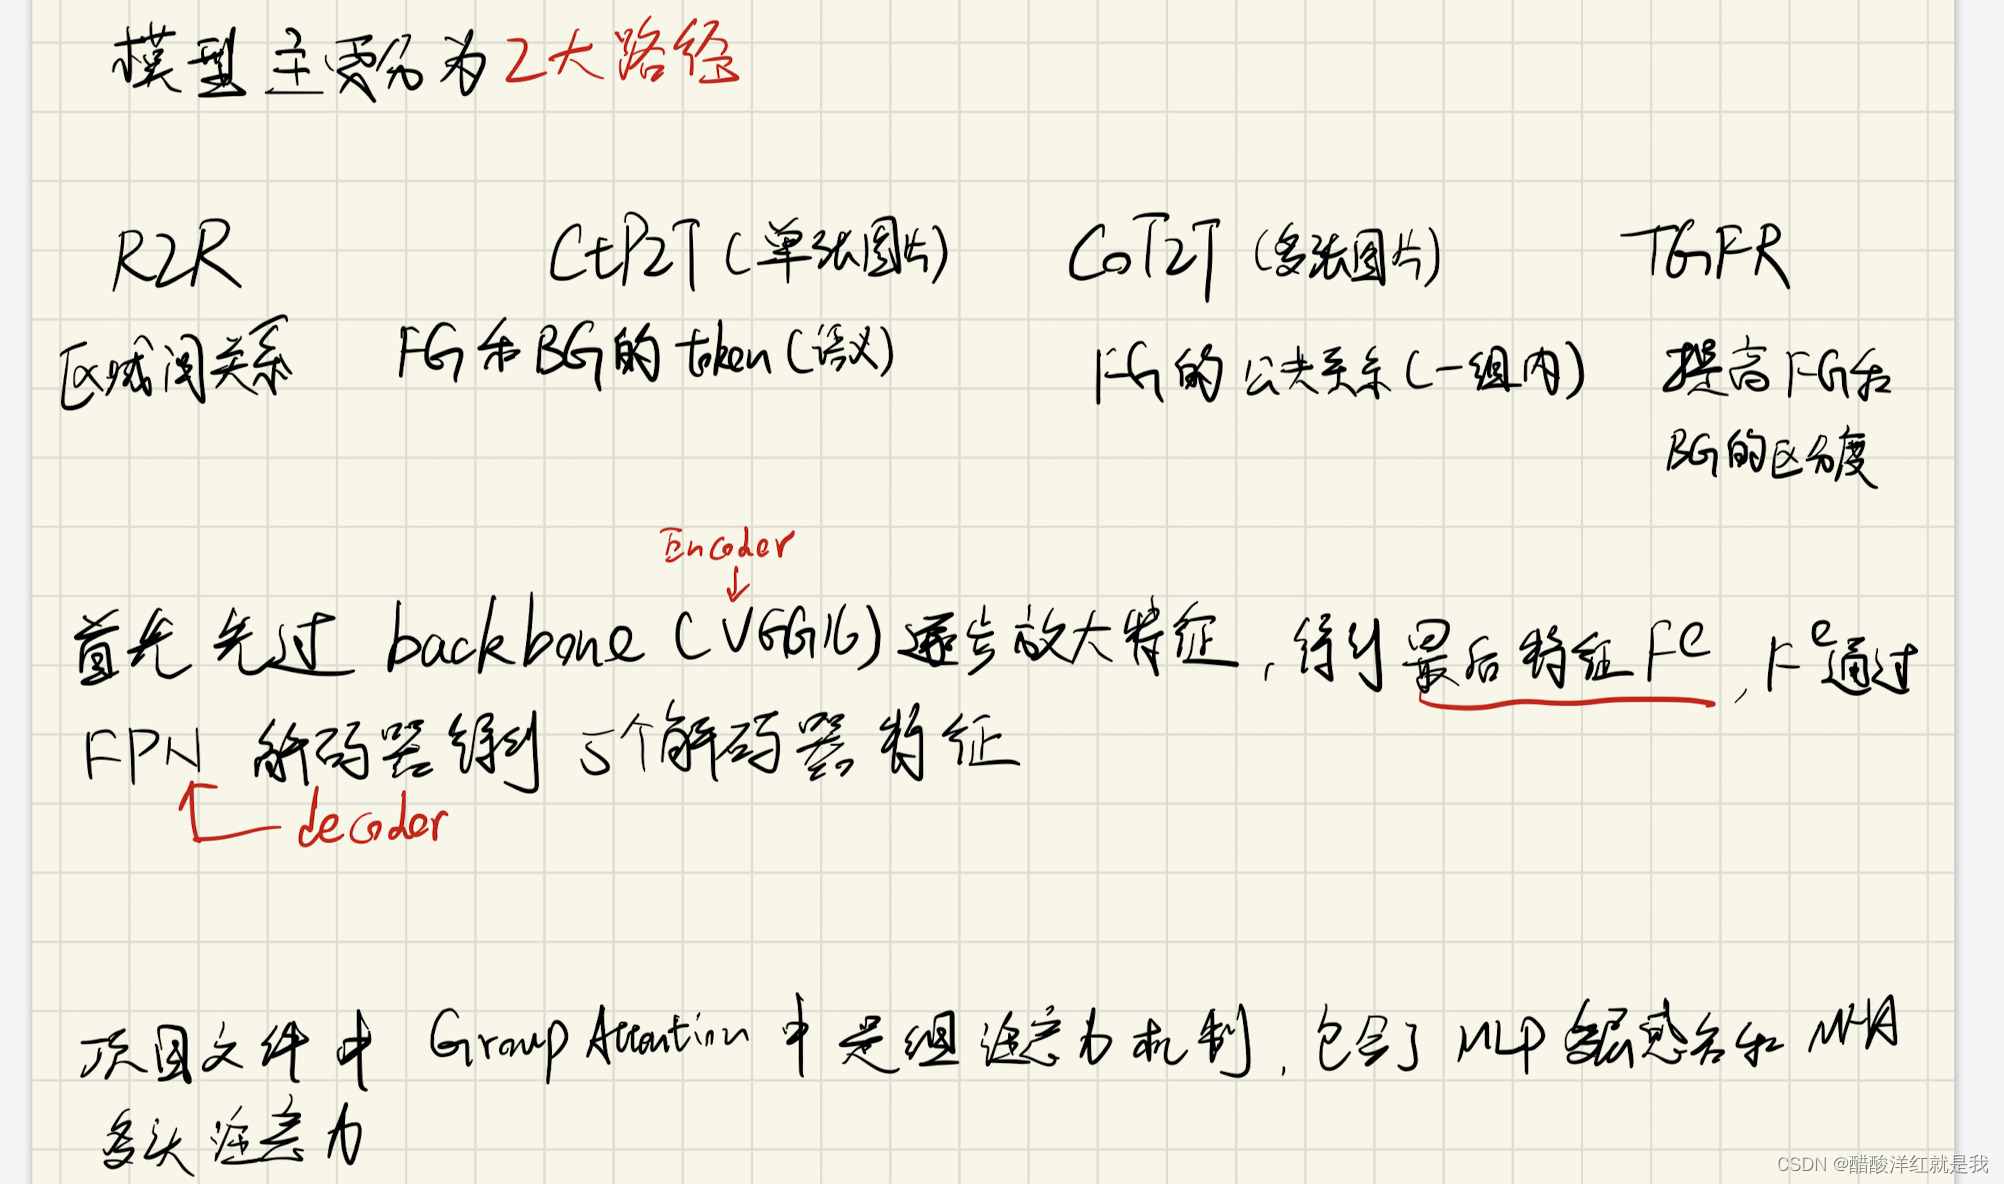 模型主要分为2大路径
R2R CtP2T（单张图片） CoT2T（多张图片） TGFR
区域间关系 FG和BG的token（语义） FG的公共关系（一组内） 提高FG和
BG的区分度
Encoder
首先先过 backbone（VGG16）逐步放大特征，得到最后特征Fe，Fe通过
FPN 解码器得到 5个解码器特征
decoder
项目文件中 Group Attention 中是组注意力机制，包含了 MLP 多层感知和 MHA
多头注意力
CSDN @醋酸洋红就是我